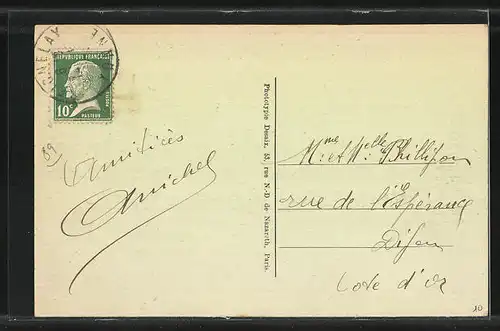 NELAY
RÉPUBLIQUE FRANÇAISE
POSTES
10c
PASTEUR
69
Amitiés
Michel
Phototypie Desaix, 53, rue N.-D de Nazareth, Paris.
Mme et Melle Phillipon
rue de l'Espérance
Dijon
Cote d'or
10